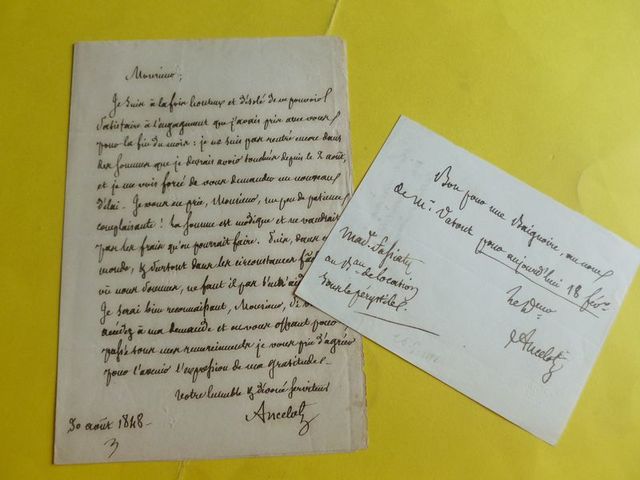 Monsieur,
Je suis à la fois honteux et désolé de ne pouvoir
satisfaire à l'engagement que j'avais pris avec vous
pour la fin du mois : je ne suis pas rentré encore dans
des sommes que je devrais avoir touchées depuis le 2 août,
et je me vois forcé de vous demander un nouveau
délai. Je vous en prie, Monsieur, un peu de patience
complaisante ! la somme est modique et ne vaudrait
pas les frais qu'on pourrait faire. Puis, dans ce
monde, & surtout dans les circonstances
où nous sommes, ne faut il pas
Je serai bien reconnaissant, Monsieur, si vous
accédez à ma demande et en vous offrant pour
tous mes remerciements je vous prie d'agréer
pour l'avenir l'expression de ma gratitude.
Votre humble & dévoué serviteur
Ancelot
30 août 1848
Bon pour une Baignoire, au nom
de Mr. Vatout pour aujourd'hui 18 févr.
Mad.
au Bau de location
sous le péristile.
Ancelot